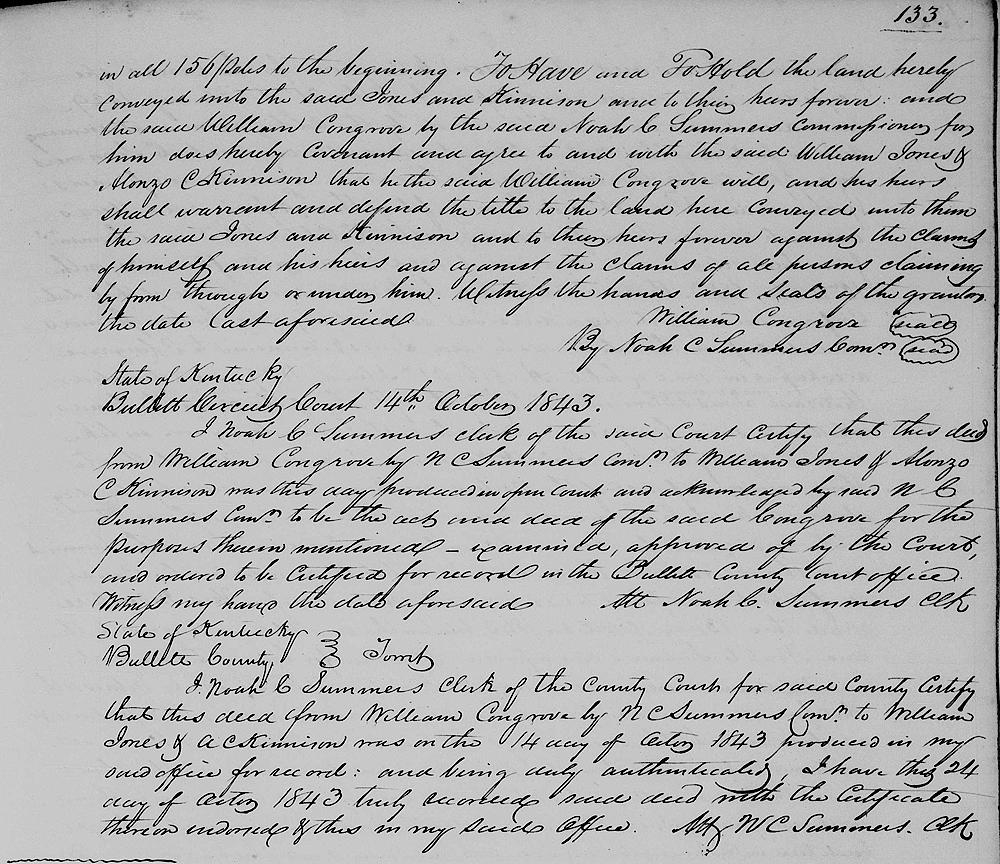 133.
in all 156 poles to the beginning. To Have and To Hold the land hereby
conveyed unto the said Jones and Kinnison and to their heirs forever: and
the said William Congrove by the said Noah C Summers Commissioner for
him does hereby Covenant and agree to and with the said William Jones &
Alonzo C Kinnison that he the said William Congrove will, and his heirs
shall warrant and defend the title to the land here Conveyed unto them
the said Jones and Kinnison and to their heirs forever against the claims
of himself and his heirs and against the claims of all persons claiming
by from through or under him. Witness the hands and seals of the grantors
the date last aforesaid
William Congrove seal
By Noah C Summers Comr. seal
State of Kentucky
Bullitt Circuit Court 14th October 1843.
I Noah C Summers clerk of the said Court Certify that this deed
from William Congrove by N C Summers Comr. to William Jones & Alonzo
C Kinnison was this day produced in open Court and acknowledged by said N C
Summers Comr. to be the act and deed of the said Congrove for the
purposes therein mentioned – examined, approved of by the Court,
and ordered to be Certified for record in the Bullitt County Court office.
Witness my hand the date aforesaid Att Noah C. Summers Clk
State of Kentucky
Bullitt County, } Towit
I, Noah C Summers Clerk of the County Court for said County Certify
that this deed from William Congrove by N C Summers Comr. to William
Jones & A C Kinnison was on the 14 day of Octor 1843 produced in my
said office for record: and being duly authenticated, I have this 24
day of Octor 1843 truly recorded said deed with the Certificate
thereon endorsed & this in my said Office. Att N C Summers. Clk